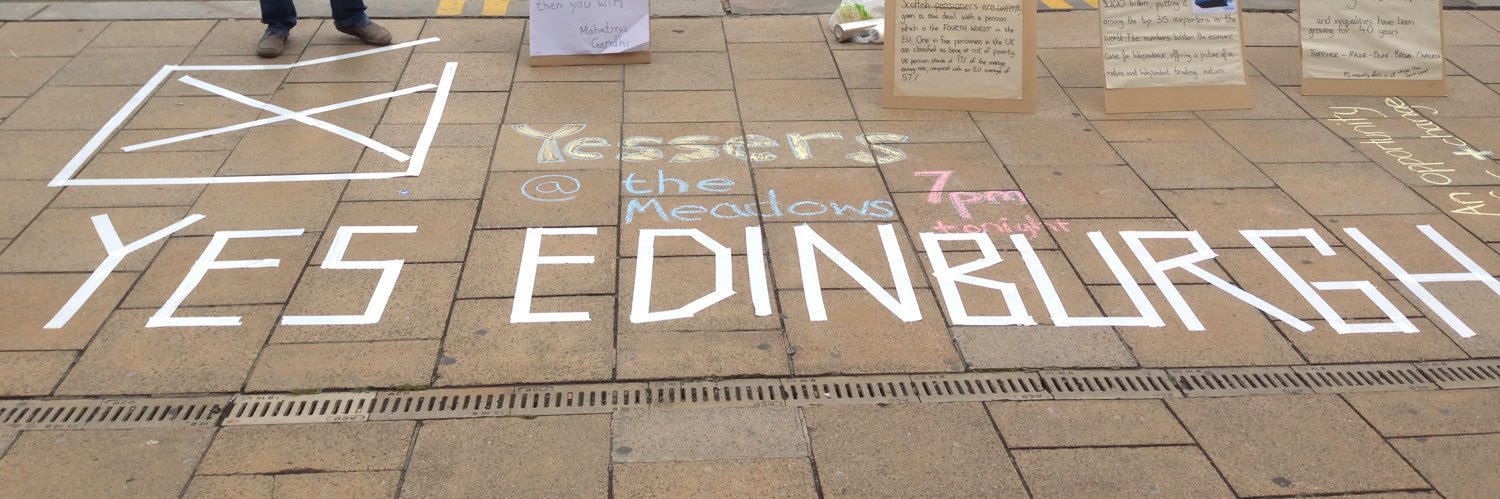 then you win
Mahatma
Gandhi
Scottish pensioners are currently
given a raw deal. With a pension
which is the FOURTH WORST in the
EU. One in five pensioners in the UK
are classified as being at risk of poverty.
UK pension stands at 17% of the
average
earning rate, compared with an EU average of
57%
£100 billion, putting it
among the top 35 exporters in the
world. The numbers bolster the economic
Case for Independence, offering a picture of a
mature and Independent trading nation.
and inequalities have been
growing for 40 years
THATCHER - MAJOR - BLAIR - BROWN - CAMERON
Yessers
@ the
Meadows
7pm
tonight
An opportunity
change
YES EDINBURGH